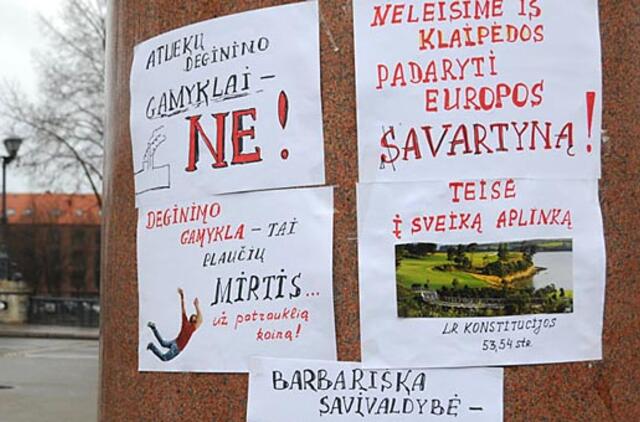 ATLIEKŲ
DEGINIMO
GAMYKLAI –
NE!
NELEISIME IŠ
KLAIPĖDOS
PADARYTI
EUROPOS
SAVARTYNĄ!
DEGINIMO
GAMYKLA – TAI
PLAUČIŲ
MIRTIS...
už patrauklią
kainą!
TEISĖ
Į SVEIKĄ APLINKĄ
LR KONSTITUCIJOS
53,54 str.
BARBARIŠKA
SAVIVALDYBĖ –